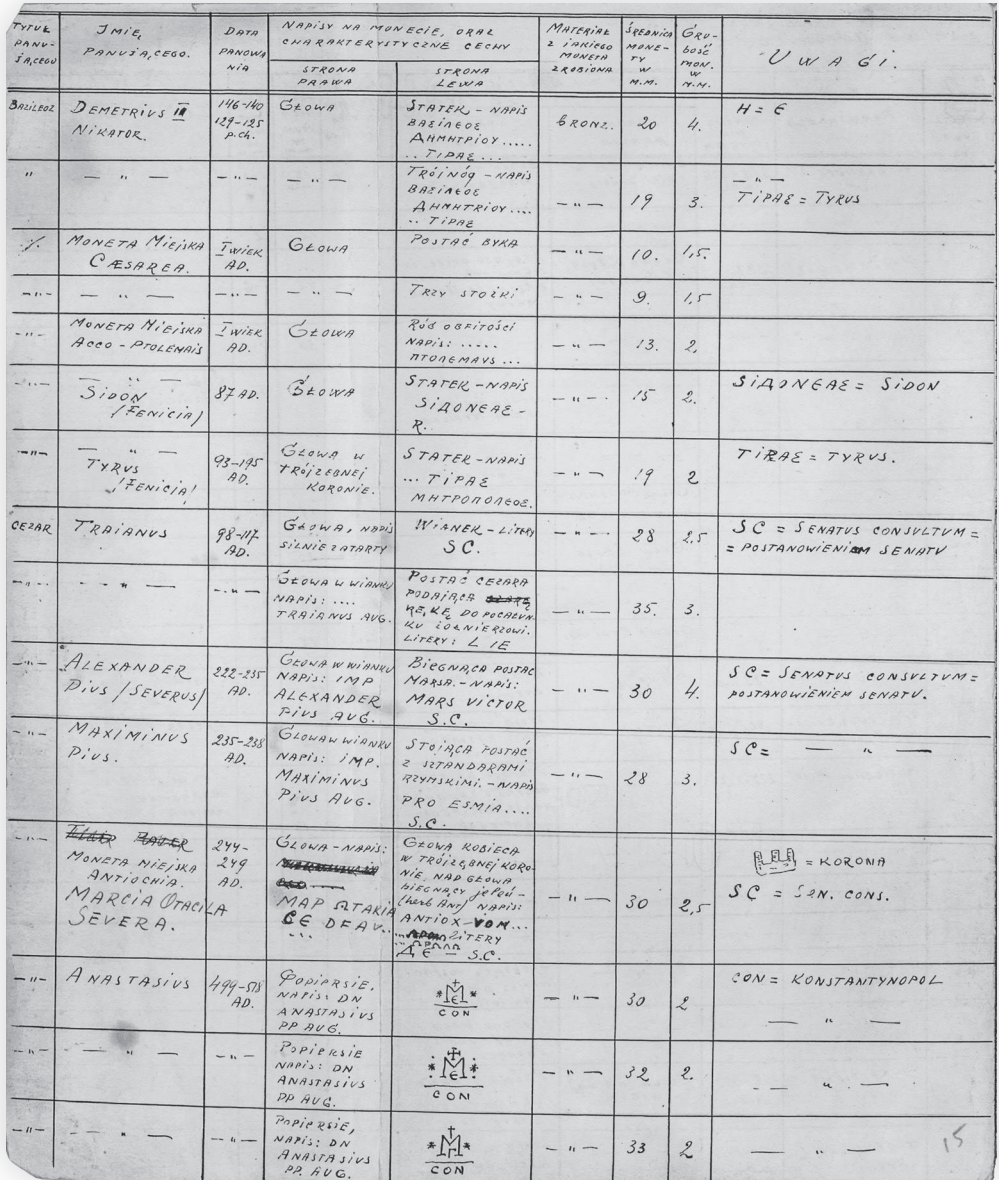 TYTUŁ PANU- JĄCEGO
IMIĘ, PANUJĄCEGO.
DATA PANOWA NIA
NAPISY NA MONECIE, ORAZ CHARAKTERYSTYCZNE CECHY
STRONA PRAWA
STRONA LEWA
MATERIAŁ Z JAKIEGO MONETA ZROBIONA
ŚREDNICA MONE- TY W M.M.
GRU- BOŚĆ MON. W M.M.
UWAGI.
BAZILEOZ
DEMETRIUS III
NIKATOR.
146-140
129-125
p.ch.
GŁOWA
STATEK - NAPIS
ΒΑΣΙΛΕΟΣ
ДΗΜΗΤΡΙΟΥ.....
.. ΤΙΡΑΣ ...
BRONZ.
20
4.
H = E
"
— " —
—"—
— " —
TRÓJNÓG - NAPIS
ΒΑΣΙΛΕΟΣ
ДΗΜΗΤΡΙΟΥ....
.. ΤΙΡΑΣ
—"—
19
3.
— " —
ΤΙΡΑΣ = TYRUS
·/.
MONETA MIEJSKA
CÆSAREA.
I WIEK
AD.
GŁOWA
POSTAĆ BYKA
—"—
10.
1,5.
—"—
— " —
—"—
— " —
TRZY STOŻKI
—"—
9.
1,5
—"—
MONETA MIEJSKA
ACCO - PTOLEMAIS
I WIEK
AD.
GŁOWA
RÓG OBFITOŚCI
NAPIS: .....
ΠΤΟΛΕΜΑΥS ...
—"—
13.
2,
—"—
— " —
SIDON
/FENICIA/
87 AD.
GŁOWA
STATEK - NAPIS
SIДΟΝΕΑΣ -
R.
—"—
15
2.
SIДΟΝΕΑΣ = SIDON
—"—
— " —
TYRUS
/FENICIA/
93-195
AD.
GŁOWA W
TRÓJZĘBNEJ
KORONIE.
STATEK - NAPIS
... ΤΙΡΑΣ
ΜΗΤΡΟΠΟΛΕΟΣ.
—"—
19
2
TIRAΣ = TYRUS.
CEZAR
TRAIANUS
98-117
AD.
GŁOWA, NAPIS
SILNIE ZATARTY
WIANEK - LITERY
SC.
—"—
28
2,5
SC = SENATUS CONSULTUM =
= POSTANOWIENIEM SENATU
—"—
— " —
—"—
GŁOWA W WIANKU
NAPIS: ....
TRAIANUS AUG.
POSTAĆ CEZARA
PODAJĄCA
RĘKĘ, DO POCAŁUN-
KU ŻOŁNIERZOWI.
LITERY: L IE
—"—
35.
3.
—"—
ALEXANDER
PIUS /SEVERUS/
222-235
AD.
GŁOWA W WIANKU
NAPIS: IMP
ALEXANDER
PIUS AUG.
BIEGNĄCA POSTAĆ
MARSA. - NAPIS:
MARS VICTOR
S.C.
—"—
30
4.
SC = SENATUS CONSULTUM =
POSTANOWIENIEM SENATU.
—"—
MAXIMINUS
PIUS.
235-238
AD.
GŁOWA W WIANKU
NAPIS: IMP.
MAXIMINUS
PIUS AUG.
STOJĄCA POSTAĆ
Z SZTANDARAMI
RZYMSKIMI. - NAPIS
PRO ESMIA....
S.C.
—"—
28
3.
SC = — " —
—"—
MONETA MIEJSKA
ANTIOCHIA.
MARCIA OTACILA
SEVERA.
244-
249
AD.
GŁOWA - NAPIS:
MAP ΩTAKIA
CЄ DFAV...
...
GŁOWA KOBIECA
W TRÓJZĘBNEJ KORO-
NIE, NAD GŁOWĄ
BIEGNĄCY
(herb Ant) NAPIS:
ANTIOX-VOM...
LITERY
ДЄ — S.C.
—"—
30
2,5
= KORONA
SC = SEN. CONS.
—"—
ANASTASIUS
499-518
AD.
POPIERSIE,
NAPIS: DN
ANASTASIUS
PP AUG.
* M *
E
CON
—"—
30
2
CON = KONSTANTYNOPOL
— " —
—"—
— " —
—"—
POPIERSIE
NAPIS: DN
ANASTASIUS
PP AUG.
M
E
CON
—"—
32
2.
— " —
—"—
— " —
—"—
POPIERSIE,
NAPIS: DN
ANASTASIUS
PP. AUG.
* M *
CON
—"—
33
2
— " —
15